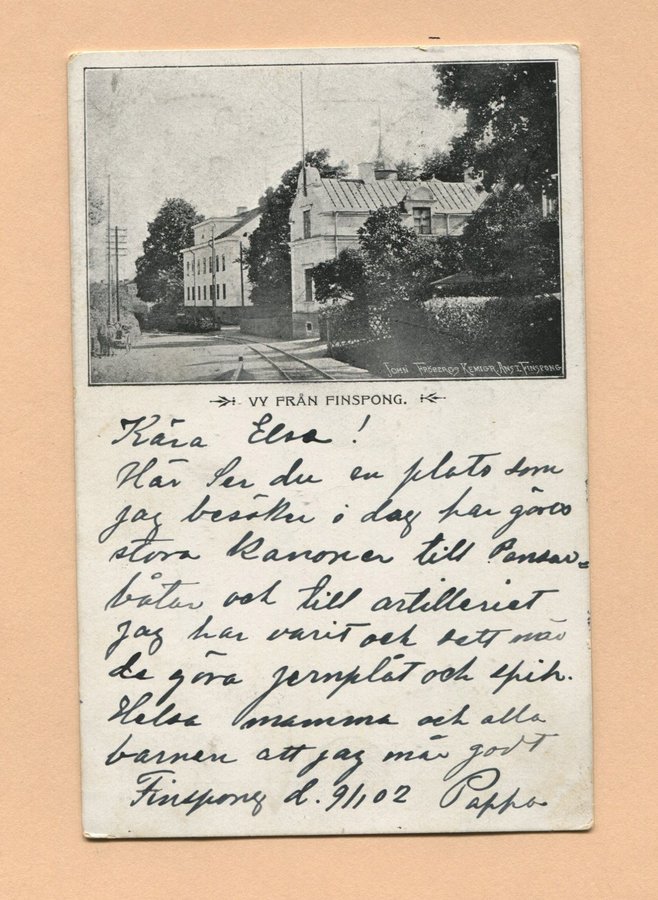 JOHN FRÖBERGS KEMIGR. ANST. FINSPONG
VY FRÅN FINSPONG.
Kära Elsa!
Här ser du en plats som
jag besöker i dag här göres
stora Kanoner till Pansar=
båtar och till artilleriet
Jag har varit och sett när
de göra jernplåt och spik.
Helsa mamma och alla
barnen att jag mår godt
Finspong d. 9/1 02 Pappa